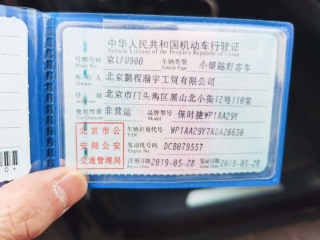 中华人民共和国机动车行驶证
Vehicle License of the People's Republic of China
号牌号码 京LFU900 车辆类型 小型越野客车
Plate No. Vehicle Type
所有人 北京鹏程瀚宇工贸有限公司
Owner
住址 北京市门头沟区黑山北小街12号110室
Address
使用性质 非营运 品牌型号 保时捷WP1AA29Y
Use Character Model
北京市公
安局公安
交通管理局
车辆识别代号 WP1AA29Y7KDA26630
VIN
发动机号码 DCB079557
Engine No.
注册日期 2019-05-28 发证日期 2019-05-28
Register Date Issue Date